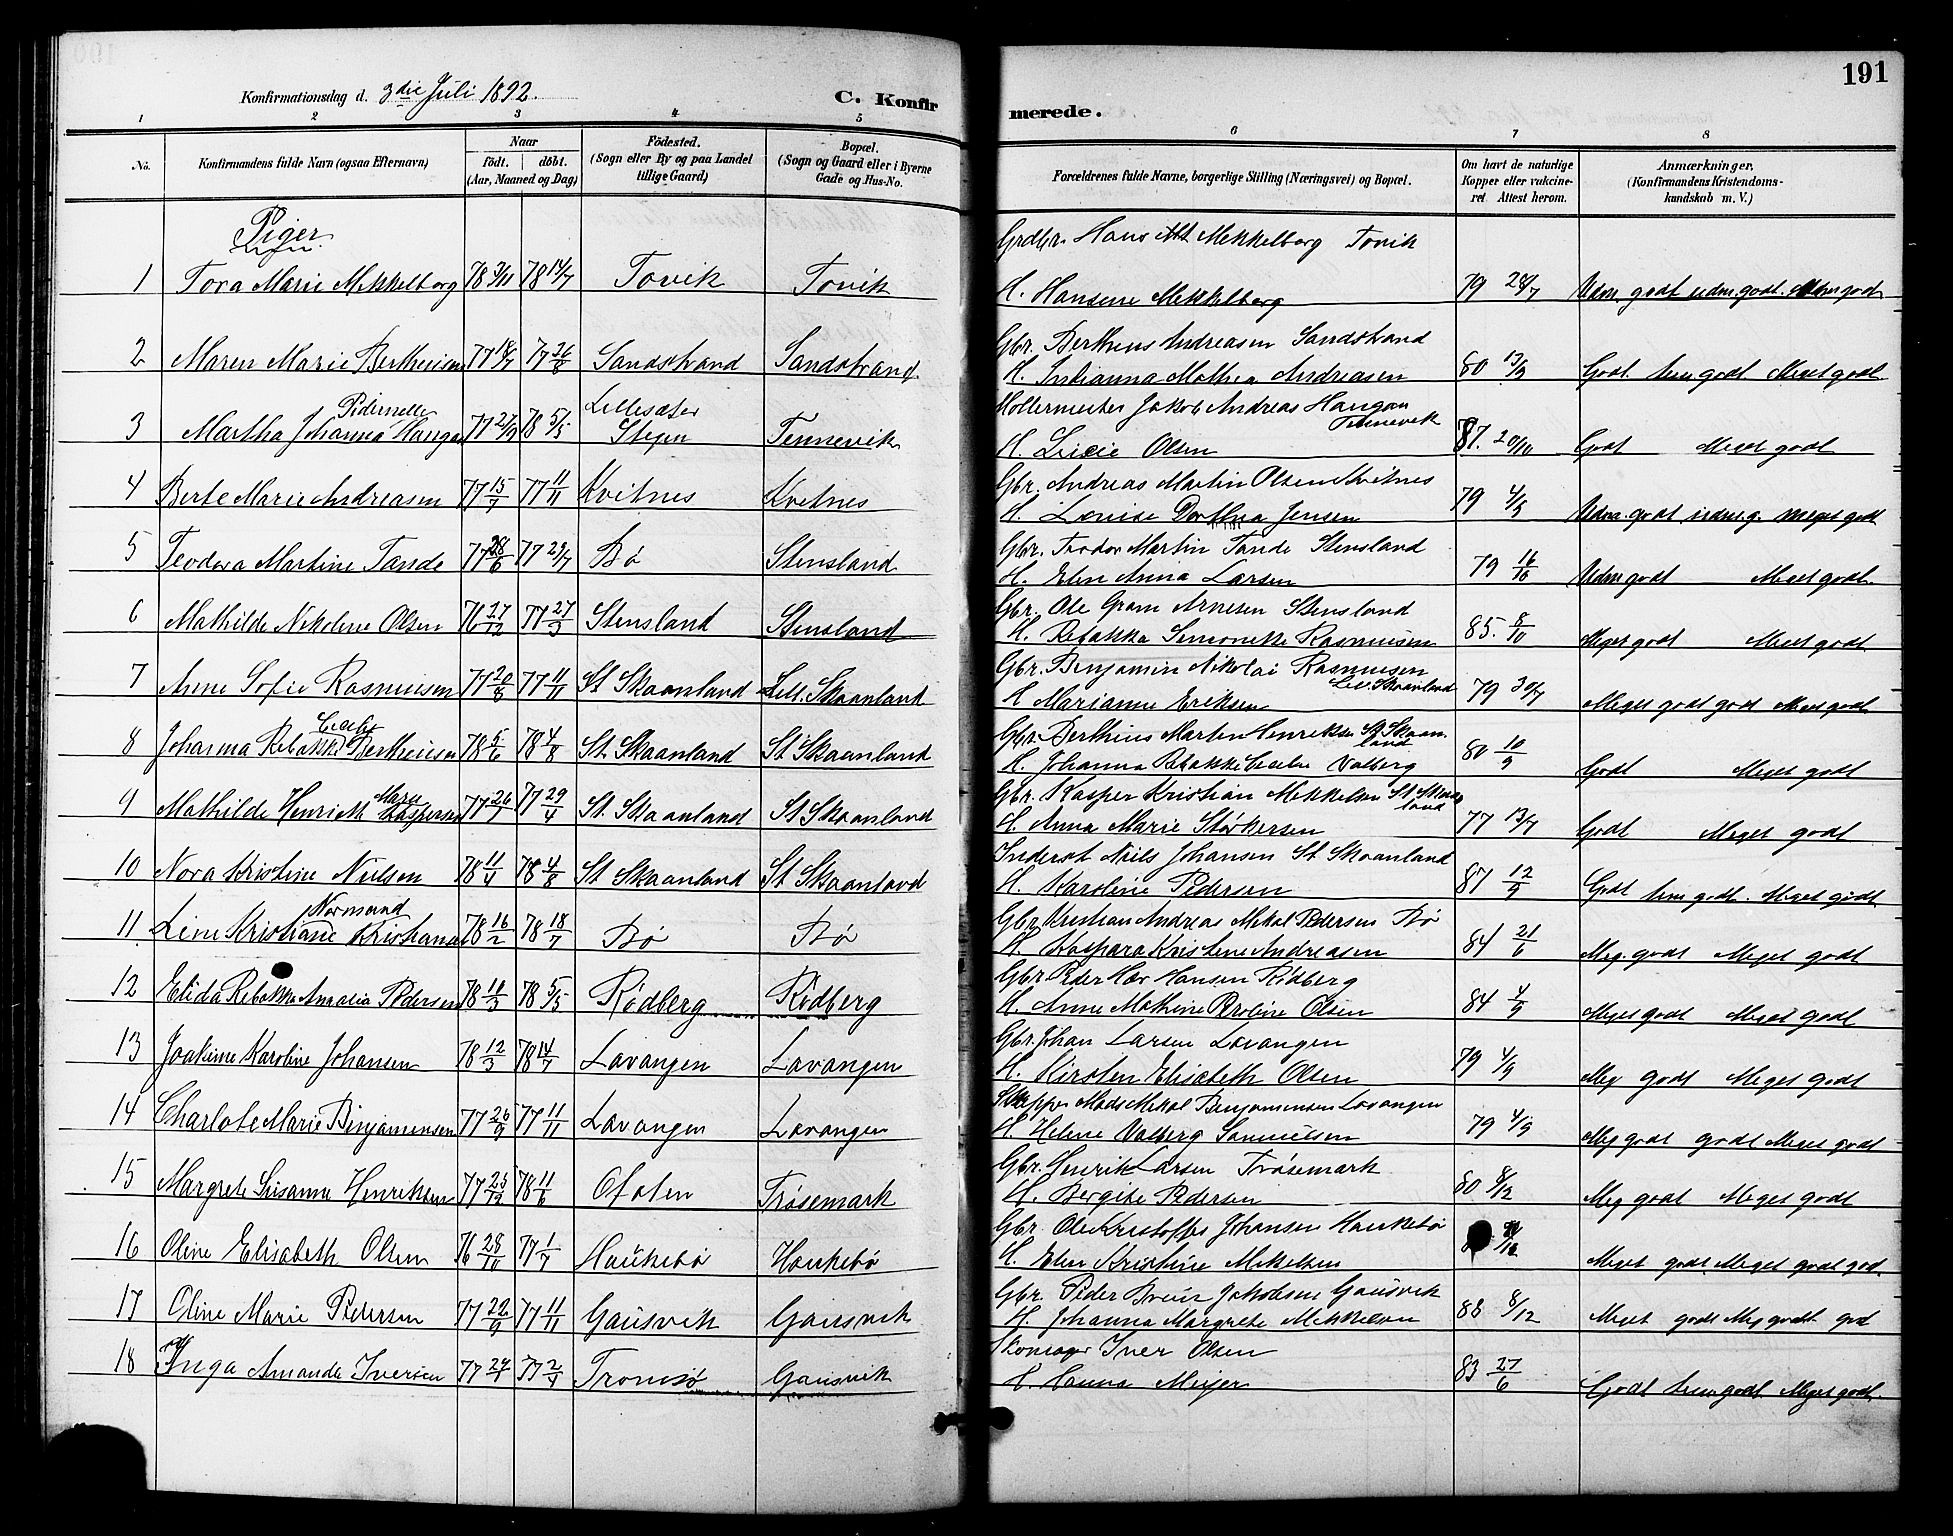 191
Konfirmationsdag d. 3die Juli 1892.
C. Konfirmerede.
1 2 3 4 5 6 7 8
No.
Konfirmandens fulde Navn (ogsaa Efternavn)
Naar
födt. döbt.
(Aar, Maaned og Dag)
Födested.
(Sogn eller By og paa Landet
tillige Gaard)
Bopæl.
(Sogn og Gaard eller i Byerne
Gade og Hus-No.
Forældrenes fulde Navne, borgerlige Stilling (Næringsvei) og Bopæl.
Om havt de naturlige
Kopper eller vukcine-
ret Attest herom.
Anmærkninger,
(Konfirmandens Kristendoms-
kundskab m. V.)
Piger
Hans Mekkelborg Tovik
1 Tora Marie Mekkelborg 78 78 14/7 Tovik Tovik H. Hansine Mekkelborg 79 28/7 Udm. godt udm. godt.
Gbr. Bertheus Andreasen Sandstrand
2 Maren Marie Bertheusen 77 18/7 77 26/8 Sandstrand Sandstrand H. Mathea Andreasen 80 13/9 Godt. godt Meget godt.
Pedernelle Lillesæter Møllermester Jakob Andreas Haugan
Tennevik
3 Martha Johanna Haugan 77 27/9 78 5/5 Stegen Tennevik H. Olsen 87. 20/10 Godt Meget godt
Gbr. Andreas Martin Olsen Kvitnes
4 Berte Marie Andreasen 77 15/7 77 11/11 Kvitnes Kvitnes H. Louise Dorthea Jensen 79 4/9 Udm. godt udm. g. meget godt
Gbr. Teodor Martin Tande Stensland
5 Teodora Martine Tande 77 28/6 77 29/7 Bø Stensland H. Elen Anna Larsen 79 16/10 Udm godt Meget godt.
Gbr. Ole Gram Arnesen Stensland
6 Mathilde Nikoline Olsen 76 27/12 77 27/3 Stensland Stensland H. Rebekka Simonette Rasmusen 85. 8/10 Meget godt Meget godt
Gbr. Benjamin Nikolai Rasmusen
Lill. Skaanland
7 Anne Sofie Rasmusen 77 20/8 77 11/11 St Skaanland Lill. Skaanland H Marianne Eriksen 79 30/7 Meget godt godt Meget godt
Cecilie Gbr. Bertheus Martin Henriksen St. Skaan-
land
8 Johanna Rebekka Bertheusen 78 5/6 78 4/8 St. Skaanland St Skaanland H. Johanna Rebekke Cecilie Valberg 80 10/9 Godt Meget godt
Marie Gbr. Kasper Kristian Mekkelsen St Skaan-
land
9 Mathilde Henriette Kaspersen 77 26/1 77 29/4 St. Skaanland St Skaanland H. Anna Marie Størkersen 77 13/7 Godt Meget godt
Inderst Niels Johansen St Skaanland
10 Nora Kristine Nielsen 78 11/4 78 4/8 St Skaanland St Skaanland H. Karoline Pedersen 87 12/9 Godt godt. Meget godt
Normand Gbr. Kristian Andreas Mikal Pedersen Bø
11 Line Kristiane Kristiansen 78 16/2 78 18/7 Bø Bø H. Kaspara Kristine Andreasen 84 21/6 Meg. godt Meget godt
Gbr. Peder Hansen Rødberg
12 Elida Rebekka Amalia Pedersen 78 11/3 78 5/5 Rødberg Rødberg H. Anne Mathine Olsen 84 4/9 Meget godt Meget godt
Gbr. Johan Larsen Lavangen
13 Joakime Karoline Johansen 78 12/3 78 14/7 Lavangen Lavangen H. Kirsten Elisabeth Olsen 79 4/9 Meg godt Meget godt
Skipper Mads Mikal Benjaminsen Lavangen
14 Charlote Marie Benjaminsen 77 26/9 77 11/11 Lavangen Lavangen H. Helene Valberg Samuelsen 79 4/9 Meg godt godt Meget godt
Gbr. Henrik Larsen Trøsemark
15 Margrete Susanna Henriksen 77 25/12 78 11/6 Ofoten Trøsemark H. Bergite Pedersen 80 8/12 Meg godt Meget godt
Gbr. Ole Kristoffer Johansen Haukebø
16 Oline Elisabeth Olsen 76 28/10 77 1/7 Haukebø Haukebø H. Elen Kristine Mikelsen Meget godt Meget godt god.
Gbr. Peder Jakobsen Gausvik
17 Oline Marie Pedersen 77 22/9 77 11/11 Gausvik Gausvik H. Johanna Margrete Mekkelsen 88 8/12 Meget godt Meg godt god
Skomager Iver Olsen
18 Inga Amanda Iversen 77 77 2/4 Tromsø Gausvik H. Hanna Meijer 83 27/6 Godt godt Meget godt.